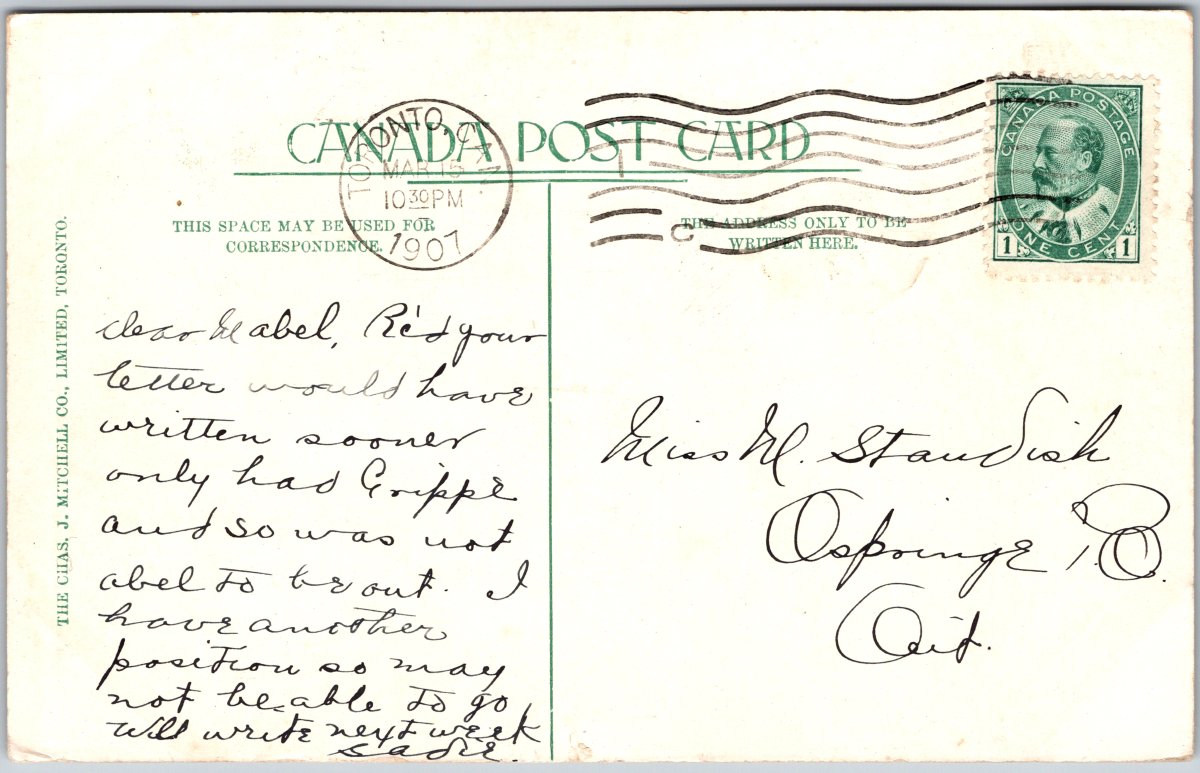 CANADA POST CARD
TORONTO, CAN.
MAR 15
10 30 PM
1907
CANADA POSTAGE
ONE CENT
1 1
THIS SPACE MAY BE USED FOR
CORRESPONDENCE.
THE ADDRESS ONLY TO BE
WRITTEN HERE.
C
THE CHAS. J. MITCHELL CO., LIMITED, TORONTO.
dear Mabel, Rc'd your
letter would have
written sooner
only had Grippe
and so was not
abel to be out. I
have another
position so may
not be able to go
Will write next week
Sadie.
Miss M. Standish
Ospringe P.O.
Ont.